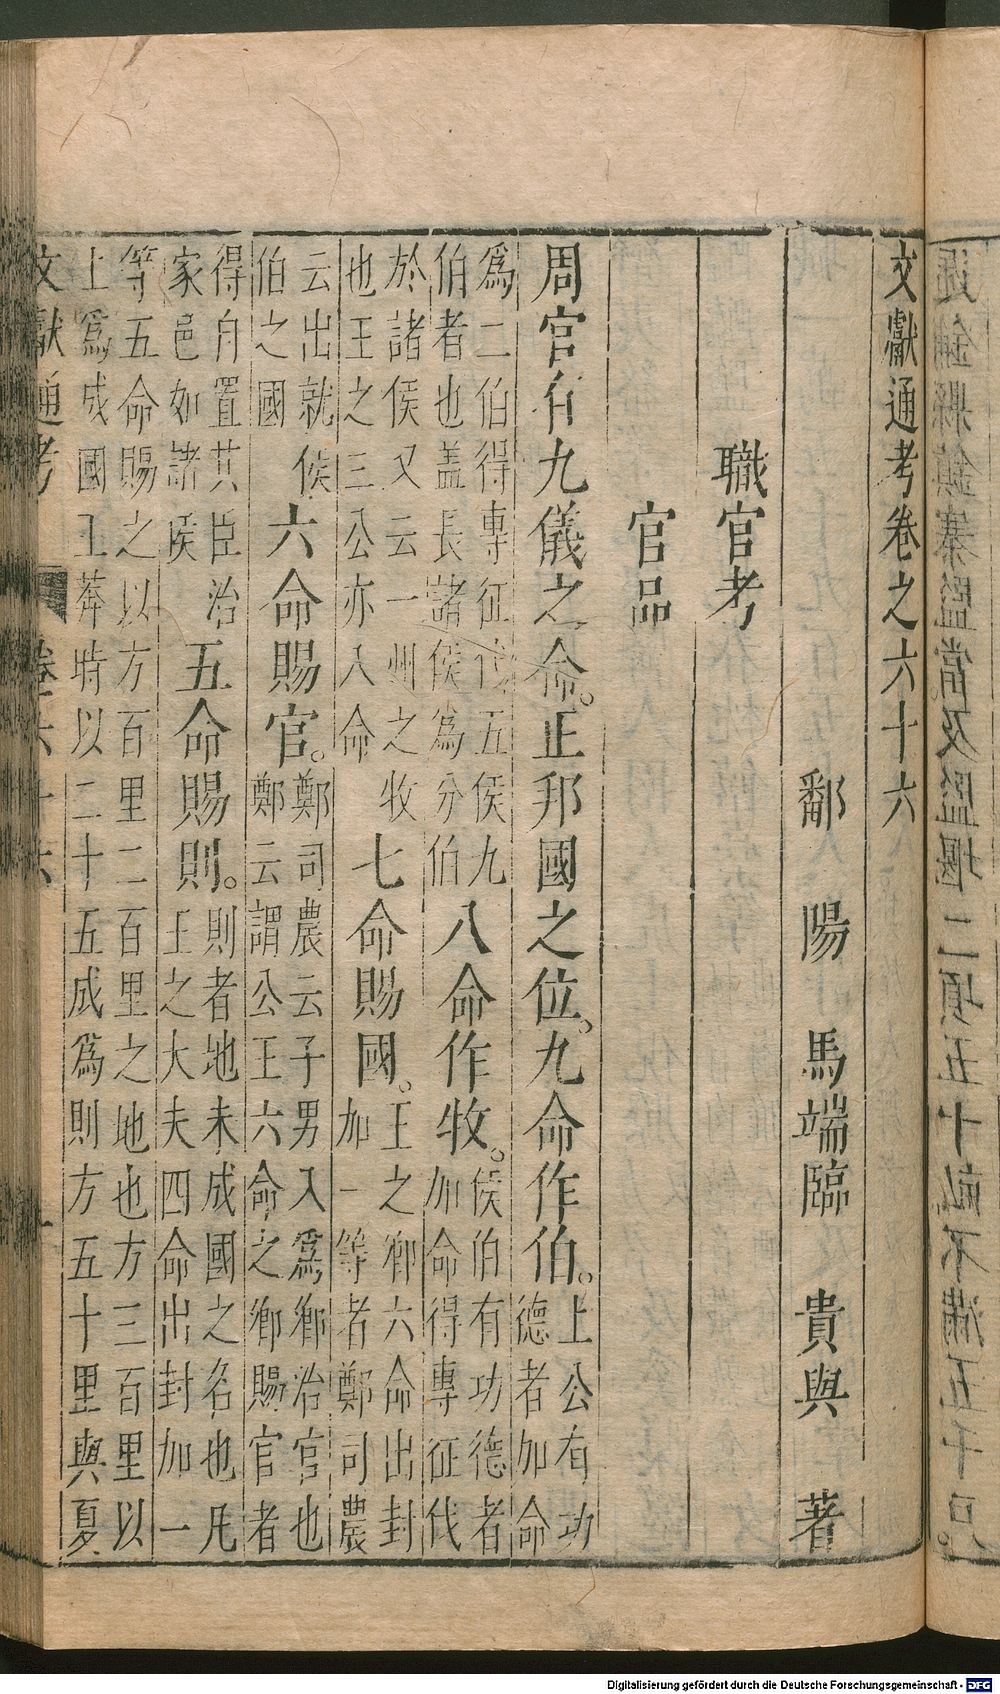 文獻通考卷之六十六
鄱陽 馬端臨 貴與 著
職官考
官品
周官有九儀之命。正邦國之位。九命作伯。上公有功德者加命
爲二伯得專征伐五侯九伯者也盖長諸侯爲分伯八命作牧。侯伯有功德者加命得專征伐
於諸侯又云一州之牧也王之三公亦入命七命賜國。王之卿六命出封加一等者鄭司農
云出就侯伯之國六命賜官。鄭司農云子男入爲鄉治官也鄭云謂公王六命之鄉賜官者
得自置其臣治家邑如諸侯五命賜則。則者地未成國之名也凡王之大夫四命出封加一
等五命賜之以方百里二百里之地也方三百里以上爲成國王莽時以二十五成爲則方五十里與夏
文獻通考 卷六十六 一
Digitalisierung gefördert durch die Deutsche Forschungsgemeinschaft - DFG